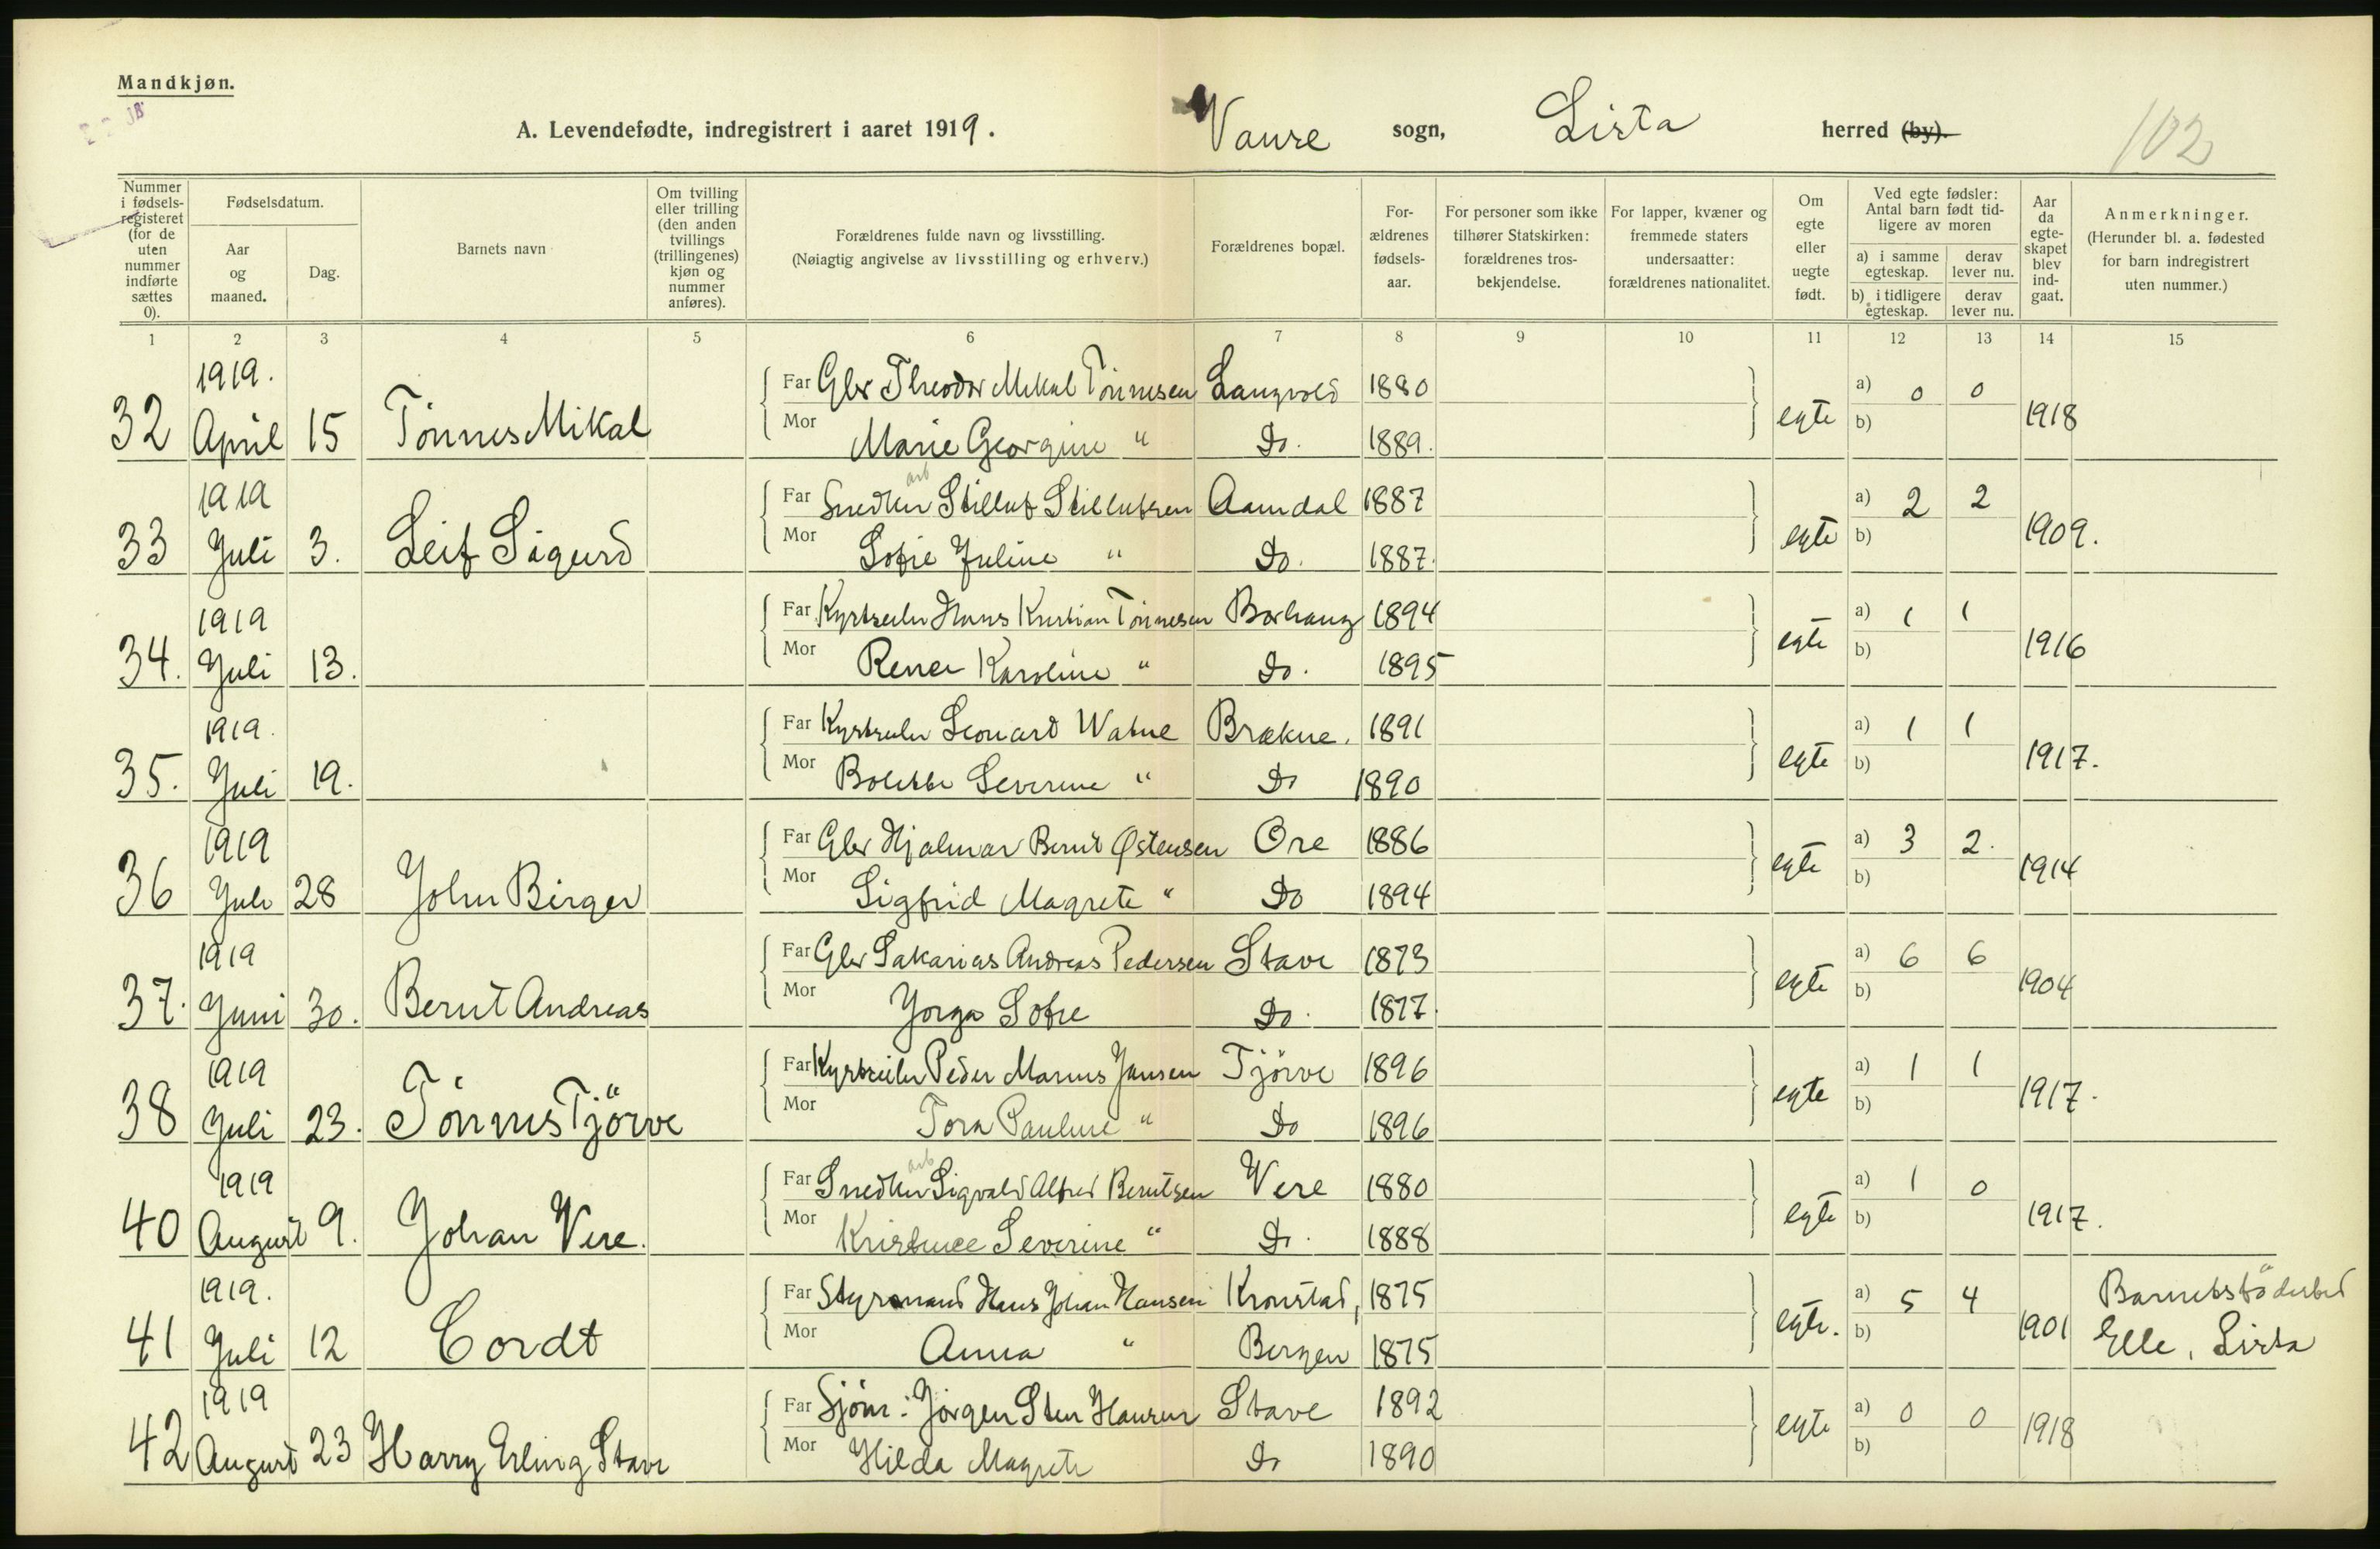 Mandkjøn.
A. Levendefødte, indregistrert i aaret 1919. Vanse sogn, Lista herred (by).
102
Nummer i fødselsregisteret (for de uten nummer indførte sættes 0).
Fødselsdatum.
Aar og maaned.
Dag.
Barnets navn
Om tvilling eller trilling (den anden tvillings (trillingenes) kjøn og nummer anføres).
Forældrenes fulde navn og livsstilling.
(Nøiagtig angivelse av livsstilling og erhverv.)
Forældrenes bopæl.
Forældrenes fødselsaar.
For personer som ikke tilhører Statskirken: forældrenes trosbekjendelse.
For lapper, kvæner og fremmede staters undersaatter: forældrenes nationalitet.
Om egte eller uegte født.
Ved egte fødsler: Antal barn født tidligere av moren
a) i samme egteskap. derav lever nu.
b) i tidligere egteskap. derav lever nu.
Aar da egteskapet blev indgaat.
Anmerkninger.
(Herunder bl. a. fødested for barn indregistrert uten nummer.)
1 2 3 4 5 6 7 8 9 10 11 12 13 14 15
1919.
32 April 15 Tönnes Mikal
Far Gbr Theodor Mikal Tönnesen Langvold 1880 egte a) 0 0 1918
Mor Marie Georgine " Do. 1889. b)
1919
33 Juli 3. Leif Sigurd
arb
Far Snedker Stilluf Stillufsen Aamdal 1887 egte a) 2 2 1909.
Mor Sofie Juline " Do. 1887. b)
1919
34. Juli 13.
Far Kyrtseiler Hans Kristian Tönnesen Borhaug 1894 egte a) 1 1 1916
Mor Karoline " Do. 1895 b)
1919.
35. Juli 19.
Far Kyrtseiler Leonard Watne Brækne. 1891 egte a) 1 1 1917.
Mor Bolette Severine " Do 1890 b)
1919
36 Juli 28 John Birger
Far Gbr Hjalmar Bernt Østensen Ore 1886 egte a) 3 2. 1914
Mor Sigfrid Magrete " Do 1894 b)
1919
37. Juni 30. Bernt Andreas
Far Gbr Sakarias Andreas Pedersen Stave 1873 egte a) 6 6 1904
Mor Jorga Sofie Do. 1877. b)
1919
38 Juli 23. Tönnes Tjörve
Far Kyrtseiler Peder Marius Jansen Tjörve 1896 egte a) 1 1 1917.
Mor Tora Pauline " Do 1896 b)
1919
40 August 9. Johan Vere.
arb
Far Snedker Sigvald Alfred Berntsen Vere 1880 egte a) 1 0 1917.
Mor Severine " Do. 1888 b)
1919.
41 Juli 12 Cordt
Far Styrmand Hans Johan Hansen Kronstad, 1875 egte. a) 5 4 1901 Barnets födested
Mor Anna " Bergen 1875 b) Elle, Lista
1919
42 August 23 Harry Erling Stave
Far Sjöm: Jörgen Sten Hansen Stave 1892 egte a) 0 0 1918
Mor Hilda Magrete Do 1890 b)